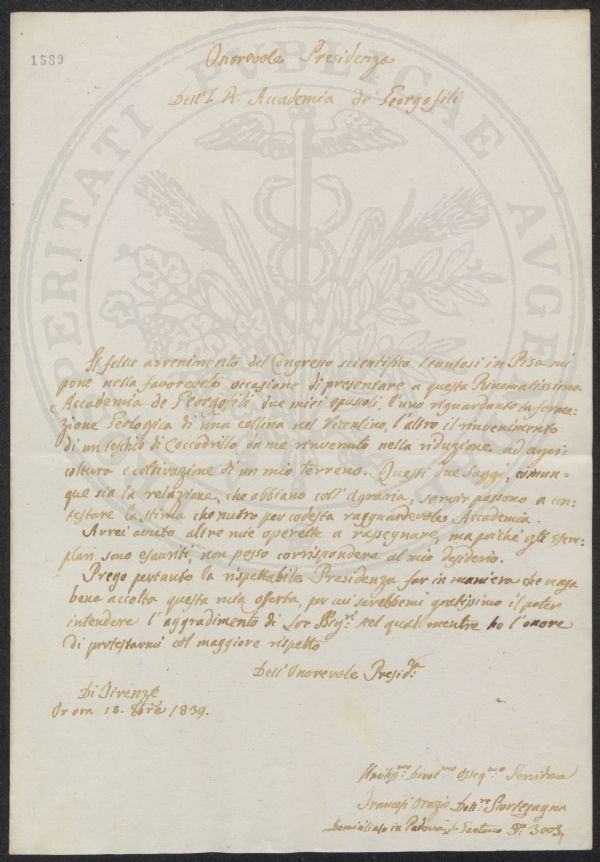 1589
Onorevole Presidenza
Dell'I. R. Accademia de' Georgofili
PROSPERITATI PUBLICAE AUGENDAE
Il felice avvenimento del Congresso scientifico tenutosi in Pisa mi
pone nella favorevole occasione di presentare a questa Rinomatissima
Accademia de Georgofili due miei opuscoli, l'uno riguardante la forma-
zione Geologica di una collina nel Vicentino, l'altro il rinvenimento
di un teschio di Coccodrillo da me rinvenuto nella riduzione ad agri-
coltura e coltivazione di un mio terreno. Questi due saggi, comun-
que sia la relazione, che abbiano coll'Agraria, servir possono a con-
testare la stima che nutro per codesta ragguardevole Accademia.
Avrei avuto altre mie operette a rassegnare, ma poichè gli esem-
plari sono esauriti, non posso corrispondere al mio desiderio.
Prego pertanto la rispettabile Presidenza far in maniera che venga
bene accolta questa mia offerta, per cui sarebbemi gratissimo il poter
intendere l'aggradimento di Lor SSig.ri nel qual mentre ho l'onore
di protestarmi col maggiore rispetto
Dell'Onorevole Presid.a
Di Firenze
18. 8bre 1839.
Umiliss.mo Divot.mo Osseq.mo Servitore
Orazio Dott.re Scortegagna
Domiciliato in Padova S. Gaetano N.o 3003